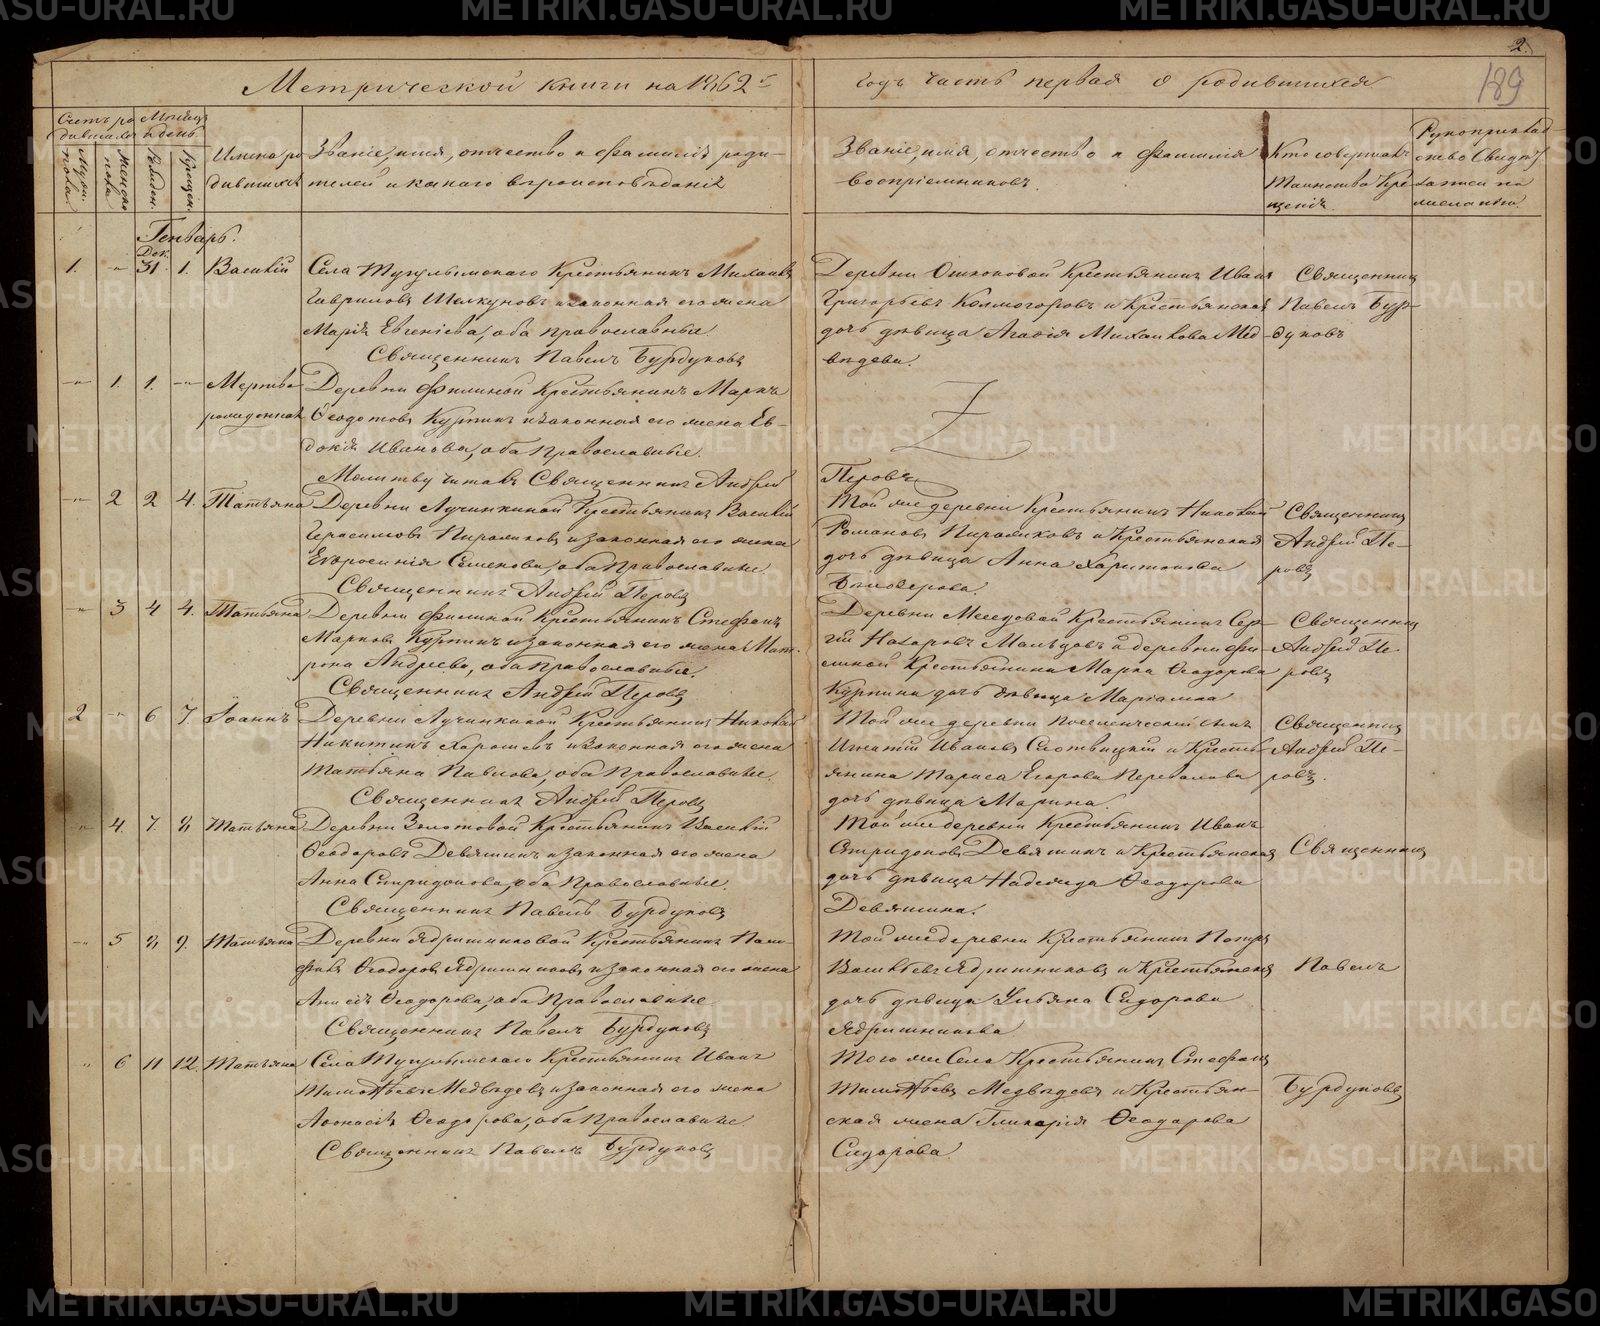 2.
189
Метрической книги на 1862й годъ часть первая о родившихся
Счетъ родившихся
Мужск. пола
Женско пола
Месяцъ и день
Рожден.
Крещен.
Имена родившихся
Званіе, имя, отчество и фамилія родителей и какого вероисповѣданія
Званіе, имя, отчество и фамилія воспріемниковъ.
Кто совершалъ таинство Крещенія
Рукоприкладство Свидѣт.
Генварь.
1. -"- Дек. 31. 1. Василій
Села Тугулымскаго Крестьянинъ Михаилъ
Гавриловъ Шелкуновъ и законная его жена
Марія Евгеніева, оба православные.
Священникъ Павелъ Бурдуковъ
Деревни Крестьянинъ Иванъ
Григорьевъ Колмогоровъ и Крестьянская
дочь дѣвица Агафія Михаилова Мед-
вѣдева.
Священникъ
Павелъ Бур-
дуковъ
-"- 1. 1. -"- Мертво
рожденная
Деревни Филиной Крестьянинъ Маркъ
Ѳеодотовъ и законная его жена Ев-
докія Иванова, оба православные.
Молитву читалъ Священникъ Андрей
Перовъ
-"- 2 2 4. Татьяна
Деревни Лучинкиной Крестьянинъ Василій
Герасимовъ Пироженковъ и законная его жена
Евфросинія Семенова, оба Православные.
Священникъ Андрей Перовъ
Той же деревни Крестьянинъ Николай
Романовъ и Крестьянская
дочь дѣвица Анна Харитонова
Бѣлозерова.
Священникъ
Андрей Пе-
ровъ
-"- 3 4 4. Татьяна
Деревни Филиной Крестьянинъ Стефанъ
Марковъ и законная его жена Мат-
рона Андреева, оба православные.
Священникъ Андрей Перовъ
Деревни Крестьянинъ Сер-
гій Назаровъ Мальцовъ и деревни Фи-
линой Крестьянина Марка Ѳеодорова
дочь дѣвица
Священникъ
Андрей Пе-
ровъ
2 -"- 6 7. Іоаннъ
Деревни Лучинкиной Крестьянинъ Николай
Никитинъ и законная его жена
Татьяна Павлова, оба Православные.
Священникъ Андрей Перовъ
Той же деревни Поселенческій сынъ
Игнатій Ивановъ и Кресть-
янина Тараса Егорова Перевалова
дочь дѣвица Марина.
Священникъ
Андрей Пе-
ровъ.
-"- 4. 7. 8, Татьяна
Деревни Золотовой Крестьянинъ Василій
Ѳеодоровъ Девяшинъ и законная его жена
Анна Спиридонова, оба Православные.
Священникъ Павелъ Бурдуковъ
Той же деревни Крестьянинъ Иванъ
Спиридоновъ Девяшинъ и Крестьянская
дочь дѣвица Надежда Ѳеодорова
Девяшина.
Священникъ
-"- 5 8, 9. Татьяна
Деревни Ядрышниковой Крестьянинъ Пам-
филъ Ѳеодоровъ Ядрышниковъ и законная его жена
Анисія Ѳеодорова, оба Православные
Священникъ Павелъ Бурдуковъ
Той же деревни Крестьянинъ Петръ
Васильевъ Ядрышниковъ и Крестьянская
дочь дѣвица Ульяна Сидорова
Ядрышникова
Павелъ
" 6 11 12. Татьяна
Села Тугулымскаго Крестьянинъ Иванъ
Тимофѣевъ Медвѣдевъ и законная его жена
Афонасія Ѳеодорова, оба Православные.
Священникъ Павелъ Бурдуковъ
Того же Села Крестьянинъ Стефанъ
Тимофѣевъ Медвѣдевъ и Крестьян-
ская жена Гликерія Ѳеодорова
Сидорова.
Бурдуковъ
METRIKI.GASO-URAL.RU